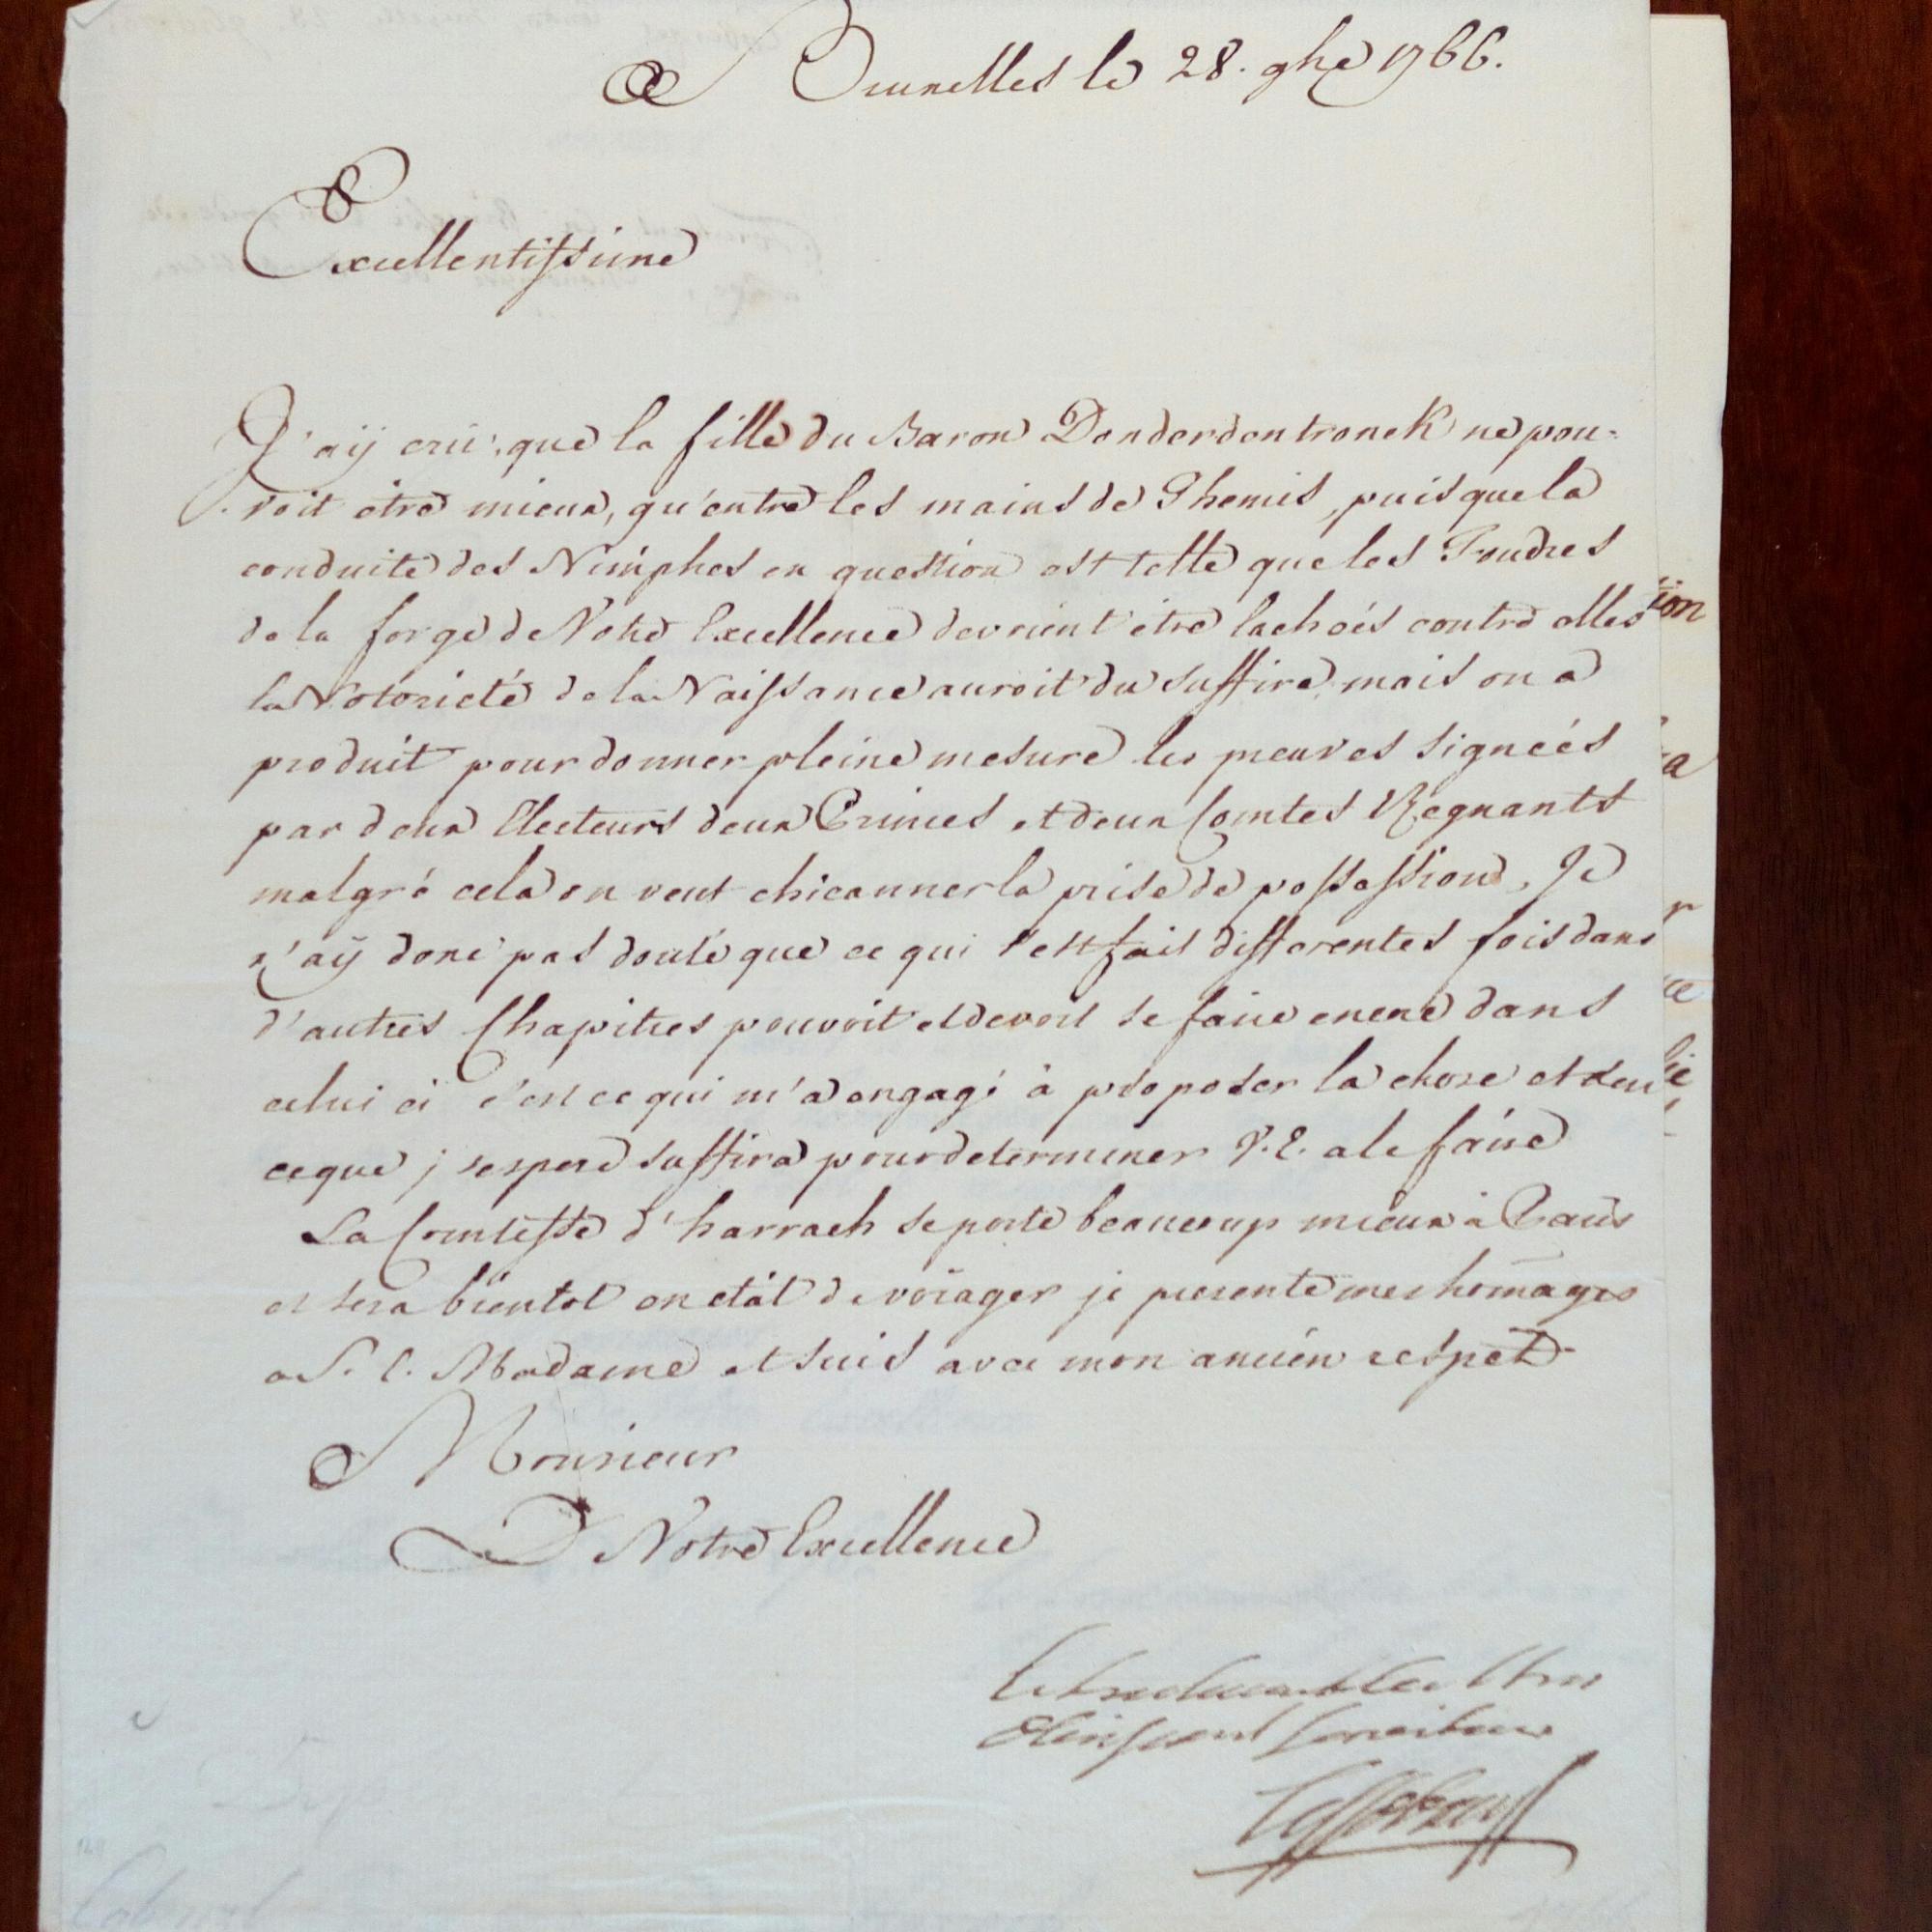 a Bruxelles le 28. 9bre 1766.
Excellentissime
J'aÿ crü, que la fille du Baron Donderdontronck ne pou-
roit étre mieux, qu'entre les mains de Themis, puisque la
conduite des Nimphes en question est telle que les Foudres
de la forge de Votre Excellence devroient étre lachoés contre elles
la Notorieté de la Naissance auroit du suffire, mais on a
produit pour donner pleine mesure les preuves signeés
par deux Electeurs deux Princes et deux Comtes Regnants
malgré cela on veut chicanner la prise de possession, Je
n'aÿ donc pas douté que ce qui s'est fait differentes fois dans
d'autres Chapitres pouvoit et devoit se faire encore dans
celui ci c'est ce qui m'a engagé à proposer la chose et
ceque j'espere suffira pour determiner V.E. a le faire
La Comtesse d'harrach se porte beaucoup mieux à Paris
et sera bientot en etat de voïager je presente mes homages
a S. E. Madame et suis avec mon ancien respect
Monsieur
De Votre Excellence